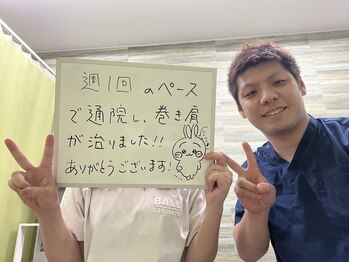 週1回のペース
で通院し、巻き肩
が治りました!!
ありがとうございます!